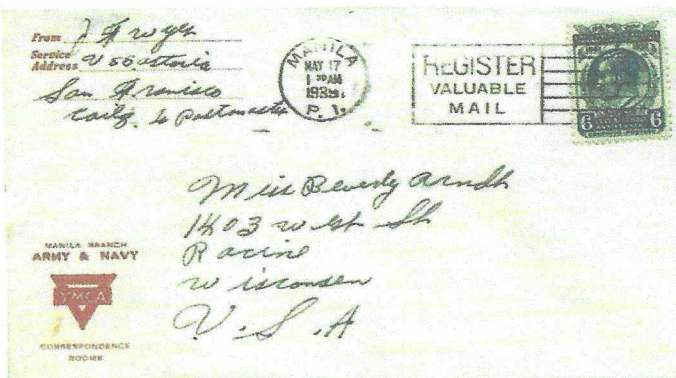 From J Fruyer
Service
Address USS Astoria
San Franisco
Calif. c/o Postmaster
MANILA
MAY 17
1 30 AM
193
P. I.
REGISTER
VALUABLE
MAIL
6 6
Miss Beverly Arndt
1403 West Sh
Racine
Wisconsen
U.S.A
MANILA BRANCH
ARMY & NAVY
YMCA
CORRESPONDENCE
ROOMS